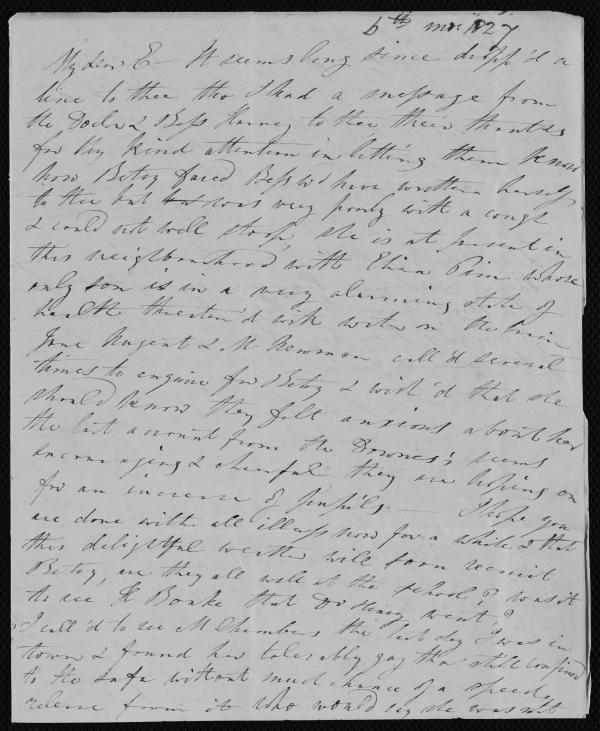 6th mo: 1827
My dear E - It seems long since dropp'd a
line to thee tho I had a message from
the Doctor & Bess Harvey to thee their thanks
for thy kind attention in letting them know
how Betsy fared Bess wd have written herself
to thee but was very poorly with a cough
& could not well stoop, she is at present in
this neighbourhood with Eliza Pim whose
only son is in a very alarming state of
health threaten'd with water on the brain
Jane Nugent & M Newman call'd several
times to enquire for Betsy & wish'd that she
should know they felt anxious about her
the last account from the Downes's seems
encouraging & chearful they are hoping on
for an increase of pupils - I hope you
are done with all illness now for a while & that
this delightful weather will soon recruit
Betsy, are they all well at the school? was it
to see H Boake that Dr Harvey went?
I call'd to see M Chambers the last day I was in
town & found her tolerably gay tho' still confined
to the sofa without much chance of a speedy
release from it who would say she was not